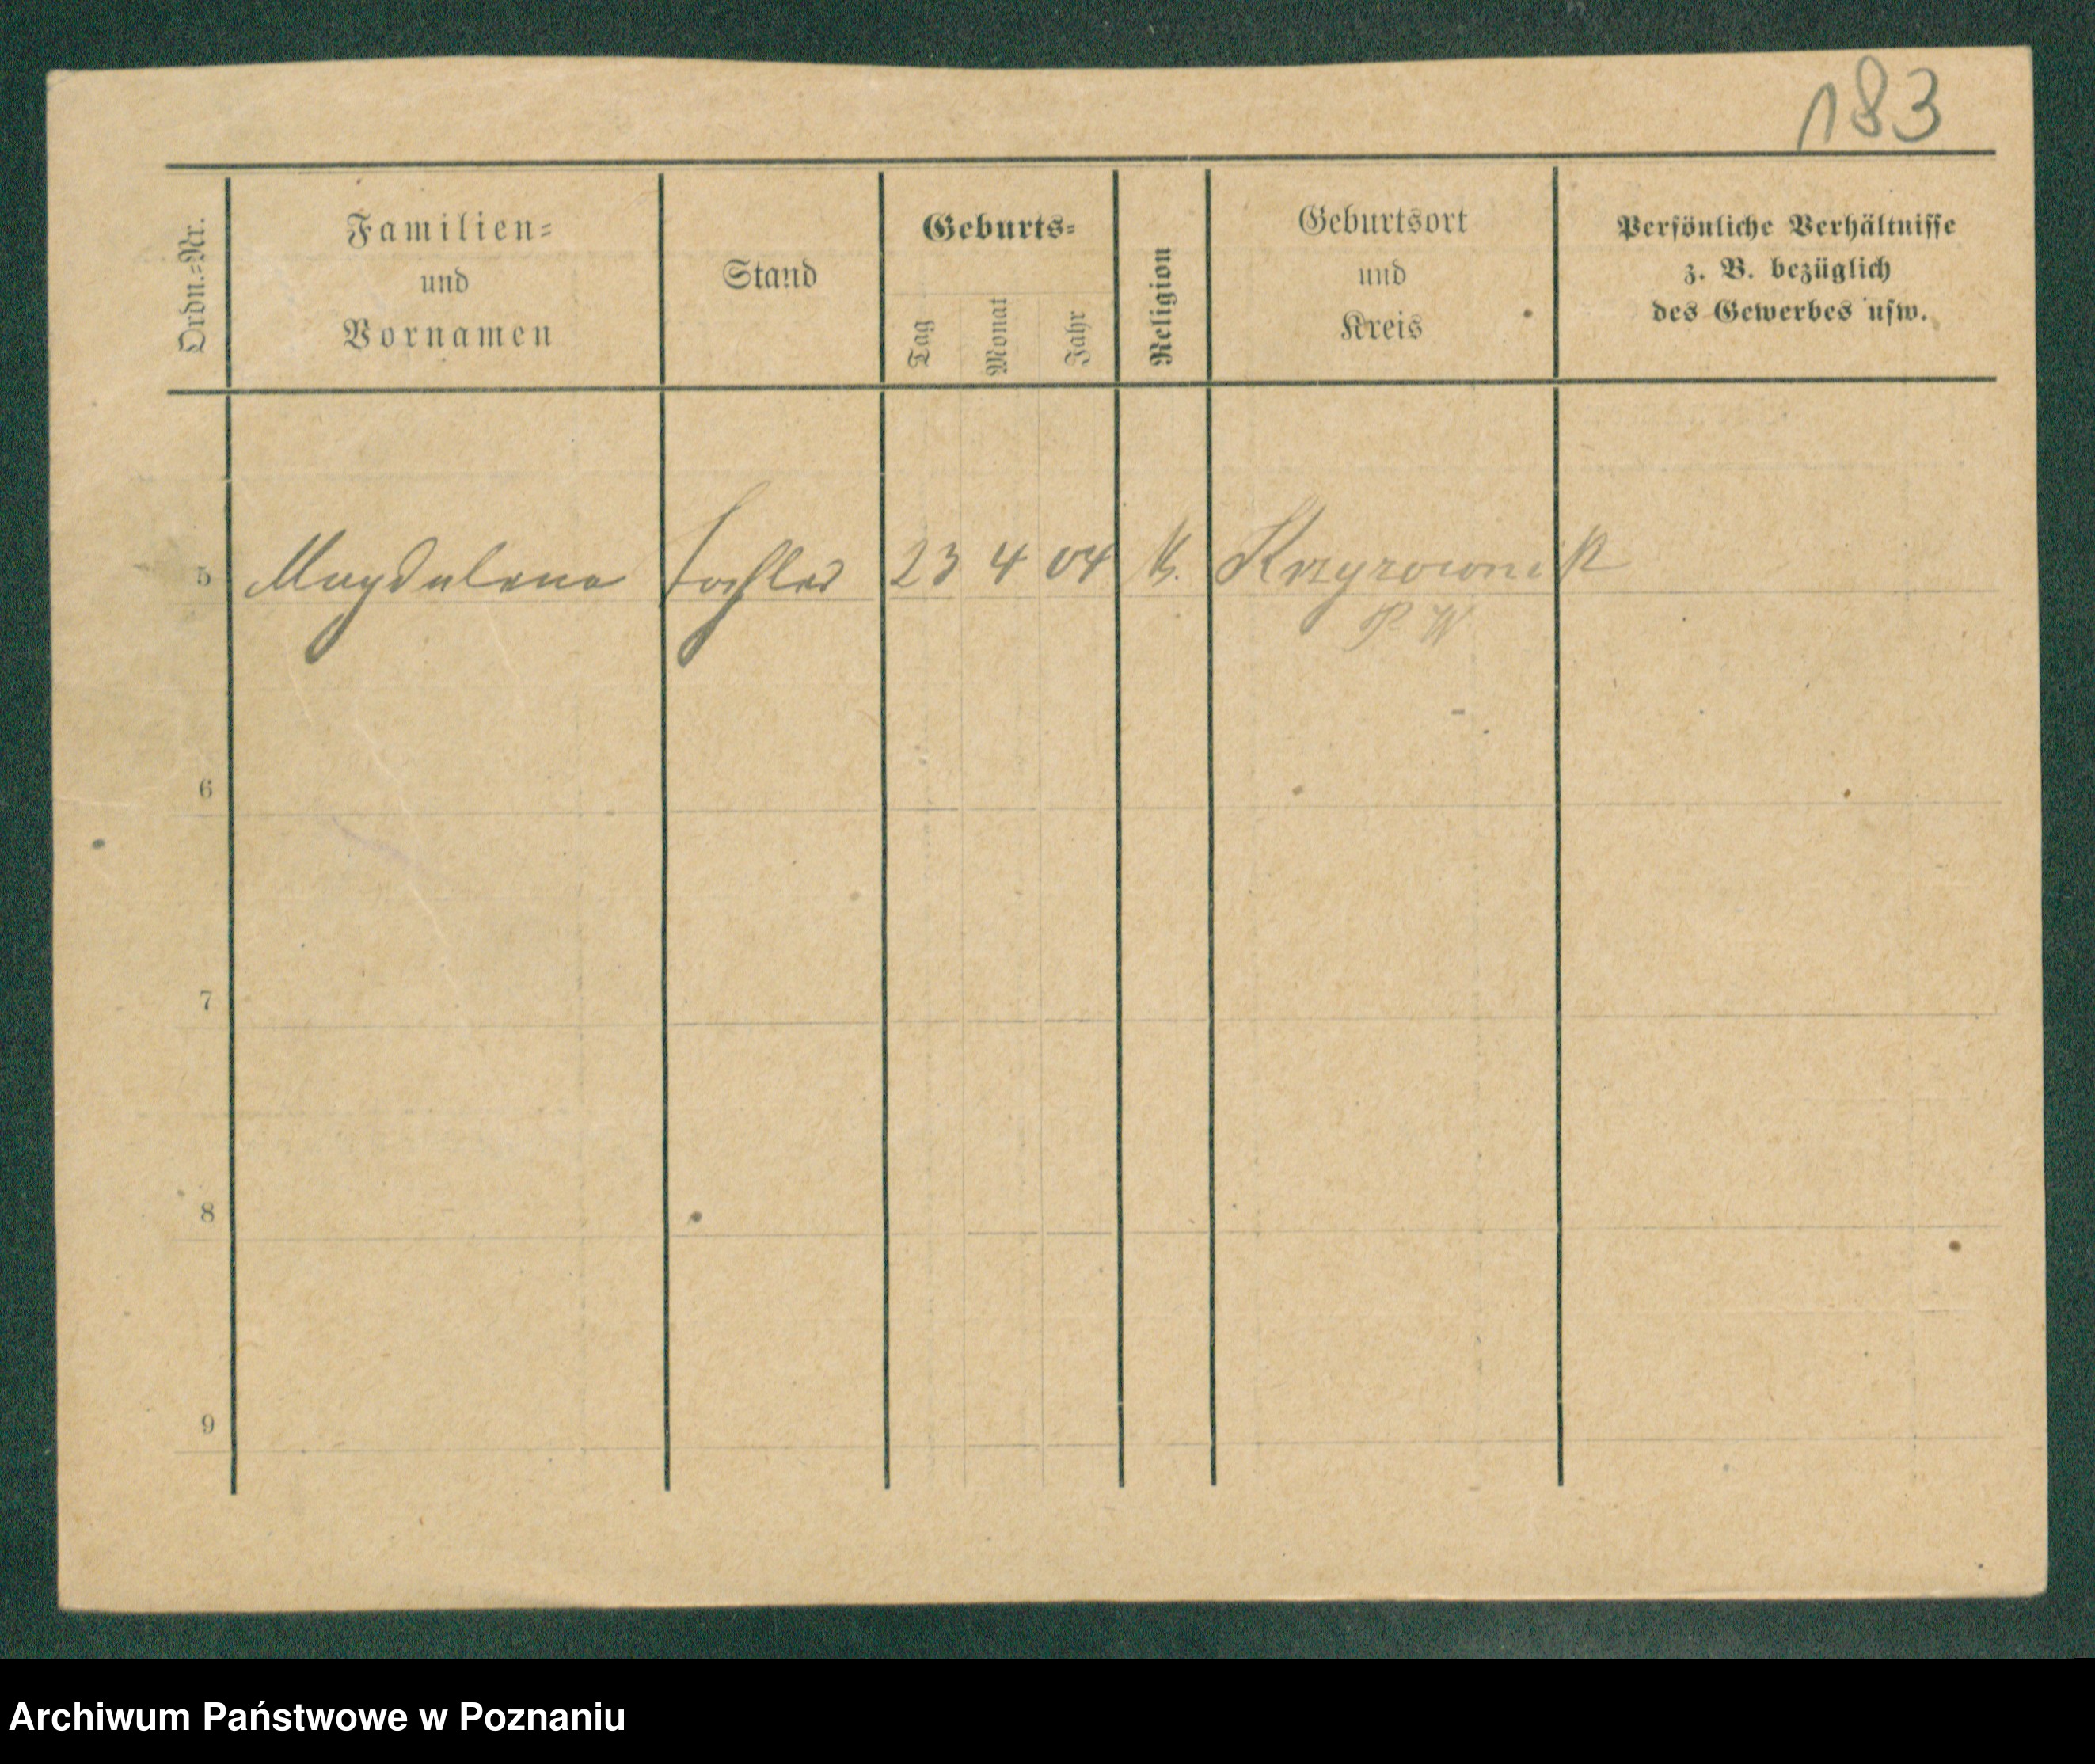 183
Ordn.=Nr.
Familien=
und
Vornamen
Stand
Geburts=
Tag
Monat
Jahr
Religion
Geburtsort
und
Kreis
Persönliche Verhältnisse
z. B. bezüglich
des Gewerbes usw.
5 Magdalena 23 4 04 k.
P. W
6
7
8
9
Archiwum Państwowe w Poznaniu